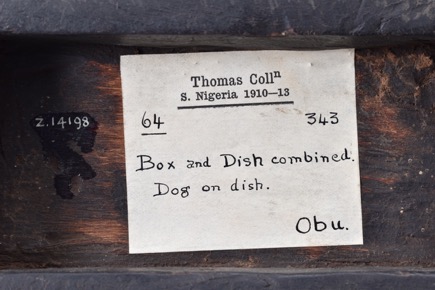 Thomas Collⁿ
S. Nigeria 1910—13
Z.14198
64 343
Box and Dish combined.
Dog on dish.
Obu.